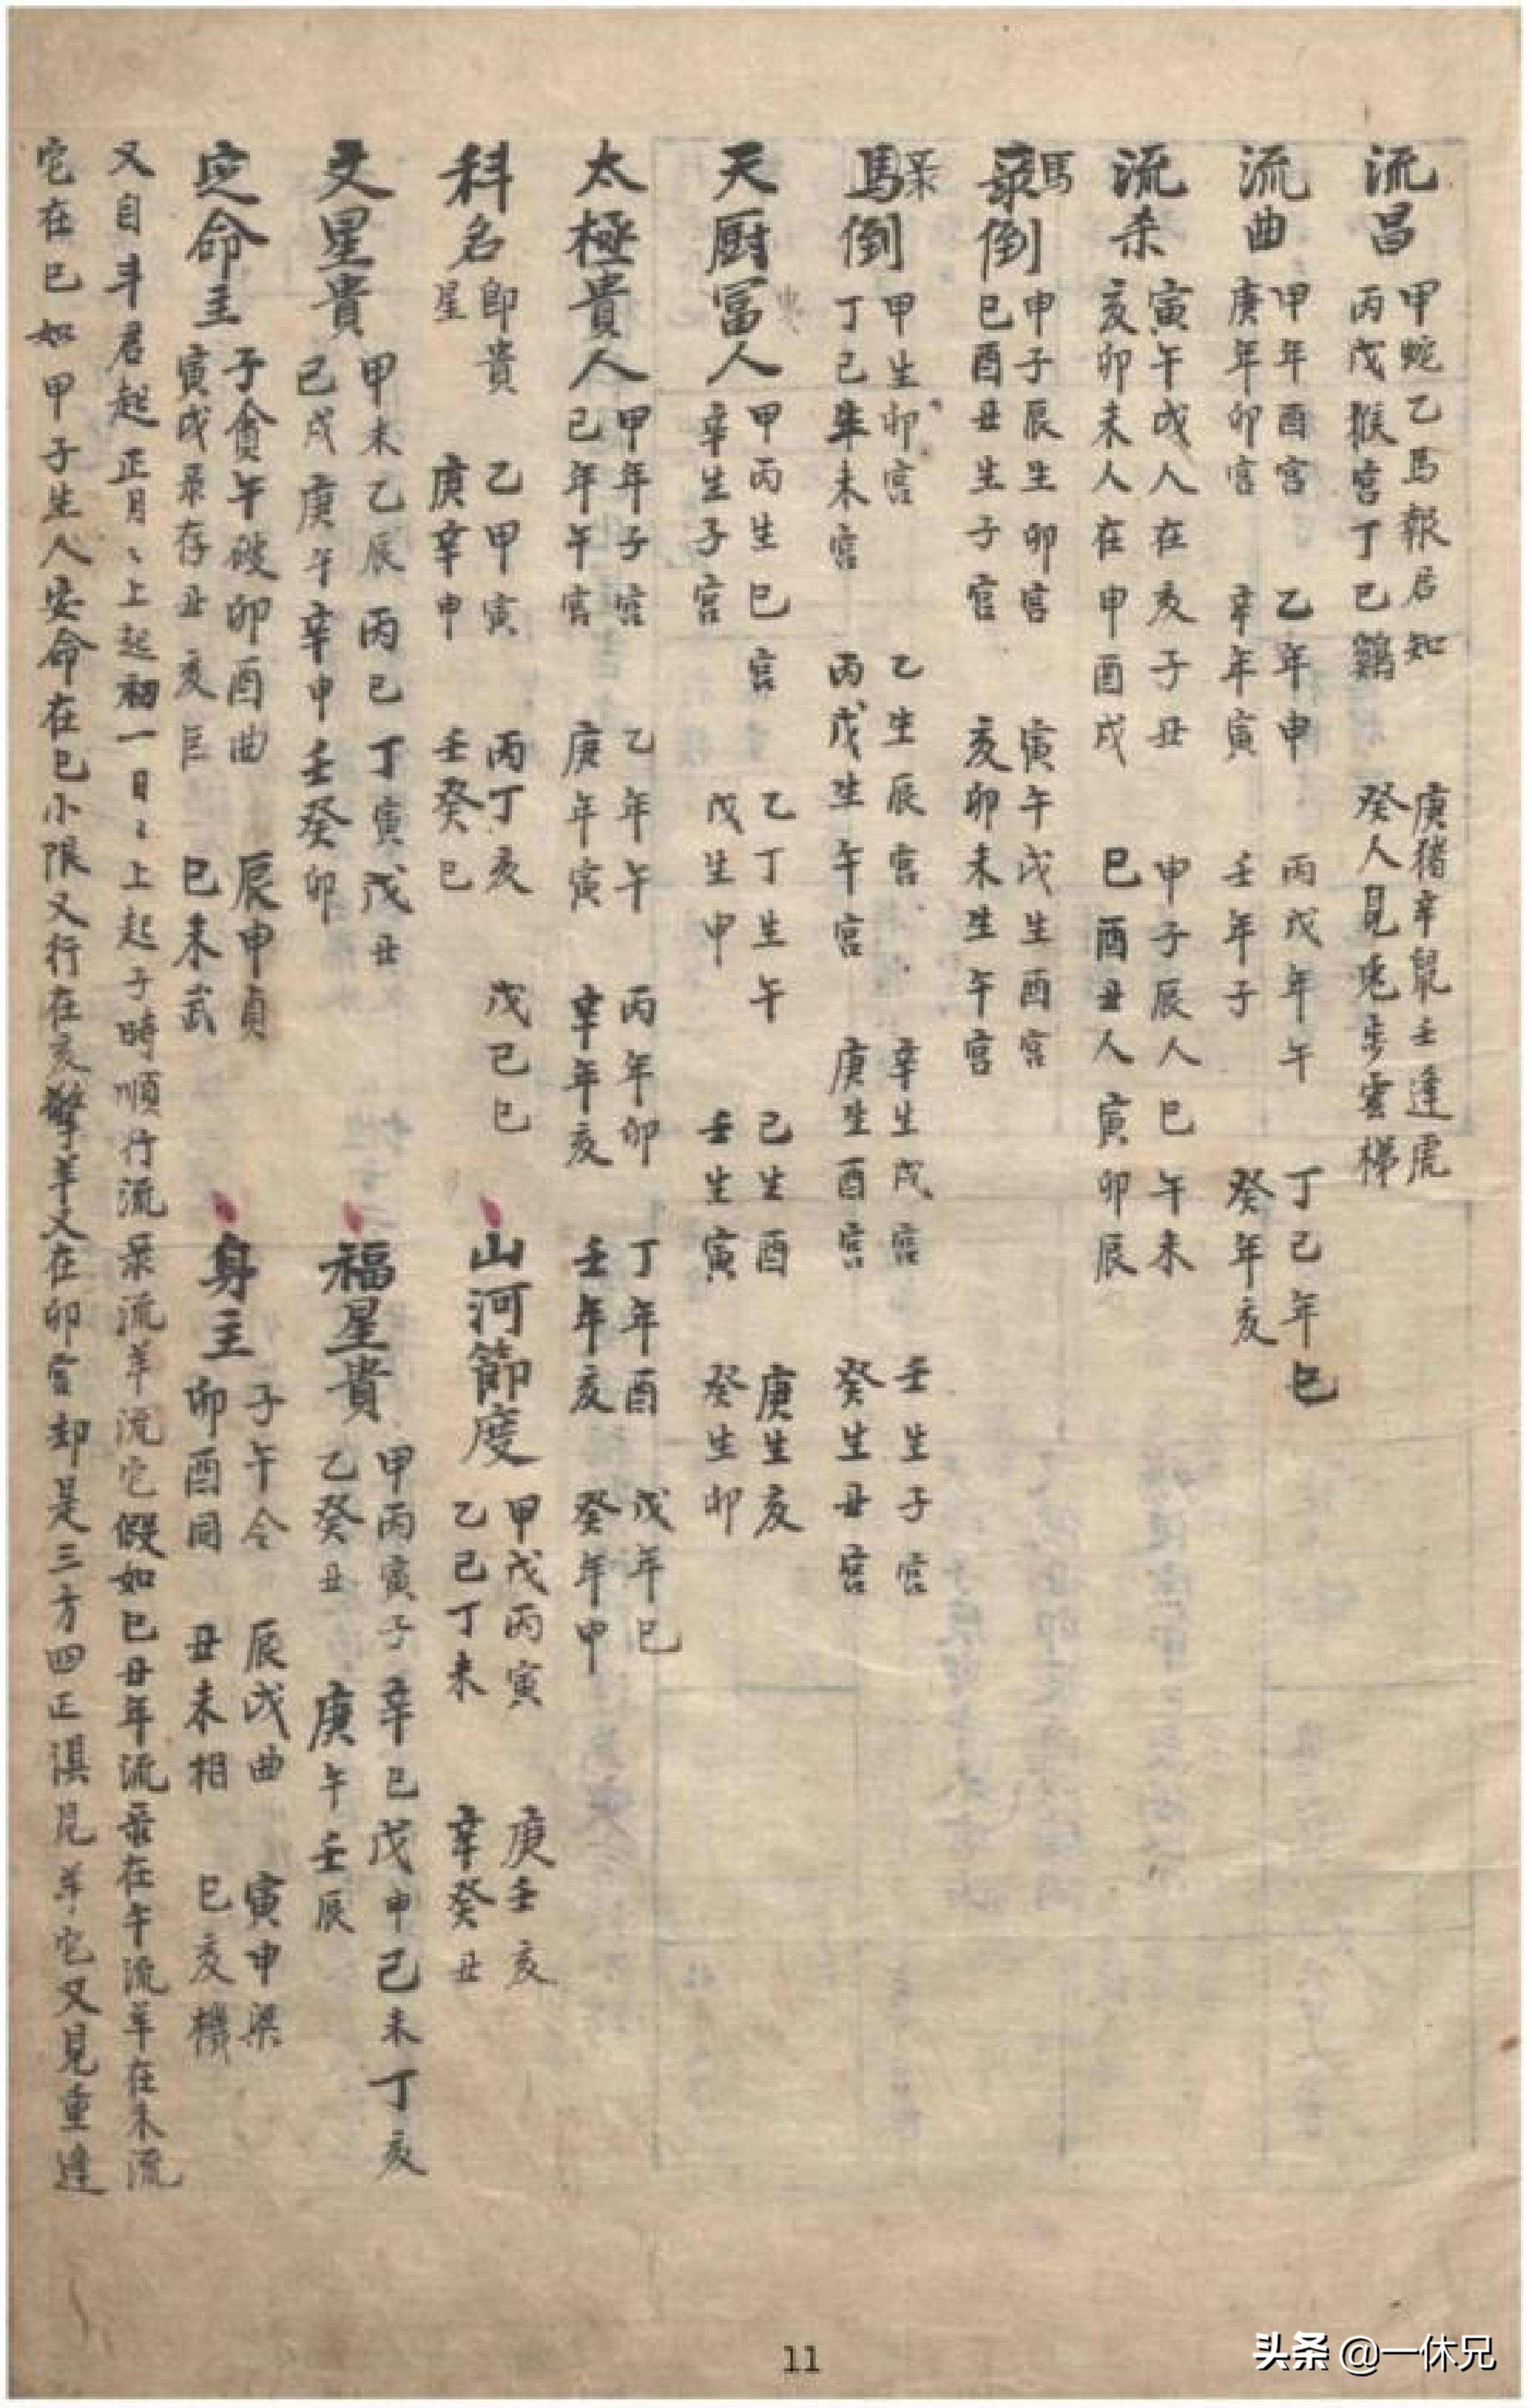 流昌 甲蛇乙馬報君知 庚猪辛鼠壬逢虎
丙戊猴宮丁己鷄 癸人見兎步雲梯
流曲 甲年酉宮 乙年申 丙戊年午 丁己年巳
庚年卯宮 辛年寅 壬年子 癸年亥
流杀 寅午戌人在亥子丑 申子辰人巳午未
亥卯未人在申酉戌 巳酉丑人寅卯辰
馬
倒 申子辰生卯宮 寅午戌生酉宮
巳酉丑生子宮 亥卯未生午宮
馬倒 甲生卯宮 乙生辰宮 辛生戌宮 壬生子宮
丁己生未宮 丙戊生午宮 庚生酉宮 癸生丑宮
天厨冨人 甲丙生巳宮 乙丁生午 己生酉 庚生亥
辛生子宮 戊生申 壬生寅 癸生卯
太極貴人 甲年子宮 乙年午 丙年卯 丁年酉 戊年巳
己年午宮 庚年寅 辛年亥 壬年亥 癸年申
科名 即貴 乙甲寅 丙丁亥 戊己巳
星 庚辛申 壬癸巳
山河節度 甲戊丙寅 庚壬亥
乙己丁未 辛癸丑
文星貴 甲未乙辰丙巳丁寅戊丑
己戌庚午辛申壬癸卯
福星貴 甲丙寅子辛巳戊申己未丁亥
乙癸丑 庚午壬辰
定命主 子貪午破卯酉曲 辰申貞
寅戌录存丑亥巨 巳未武
身主 子午令 辰戌曲 寅申梁
卯酉同 丑未相 巳亥機
又自斗君起正月〻上起初一日〻上起子時順行流录流羊流它假如巳丑年流录在午流羊在未流
它在巳如甲子生人安命在巳小限又行在亥擎羊又在卯宮却是三方四正俱見羊它又見重逢
11
头条 @一休兄